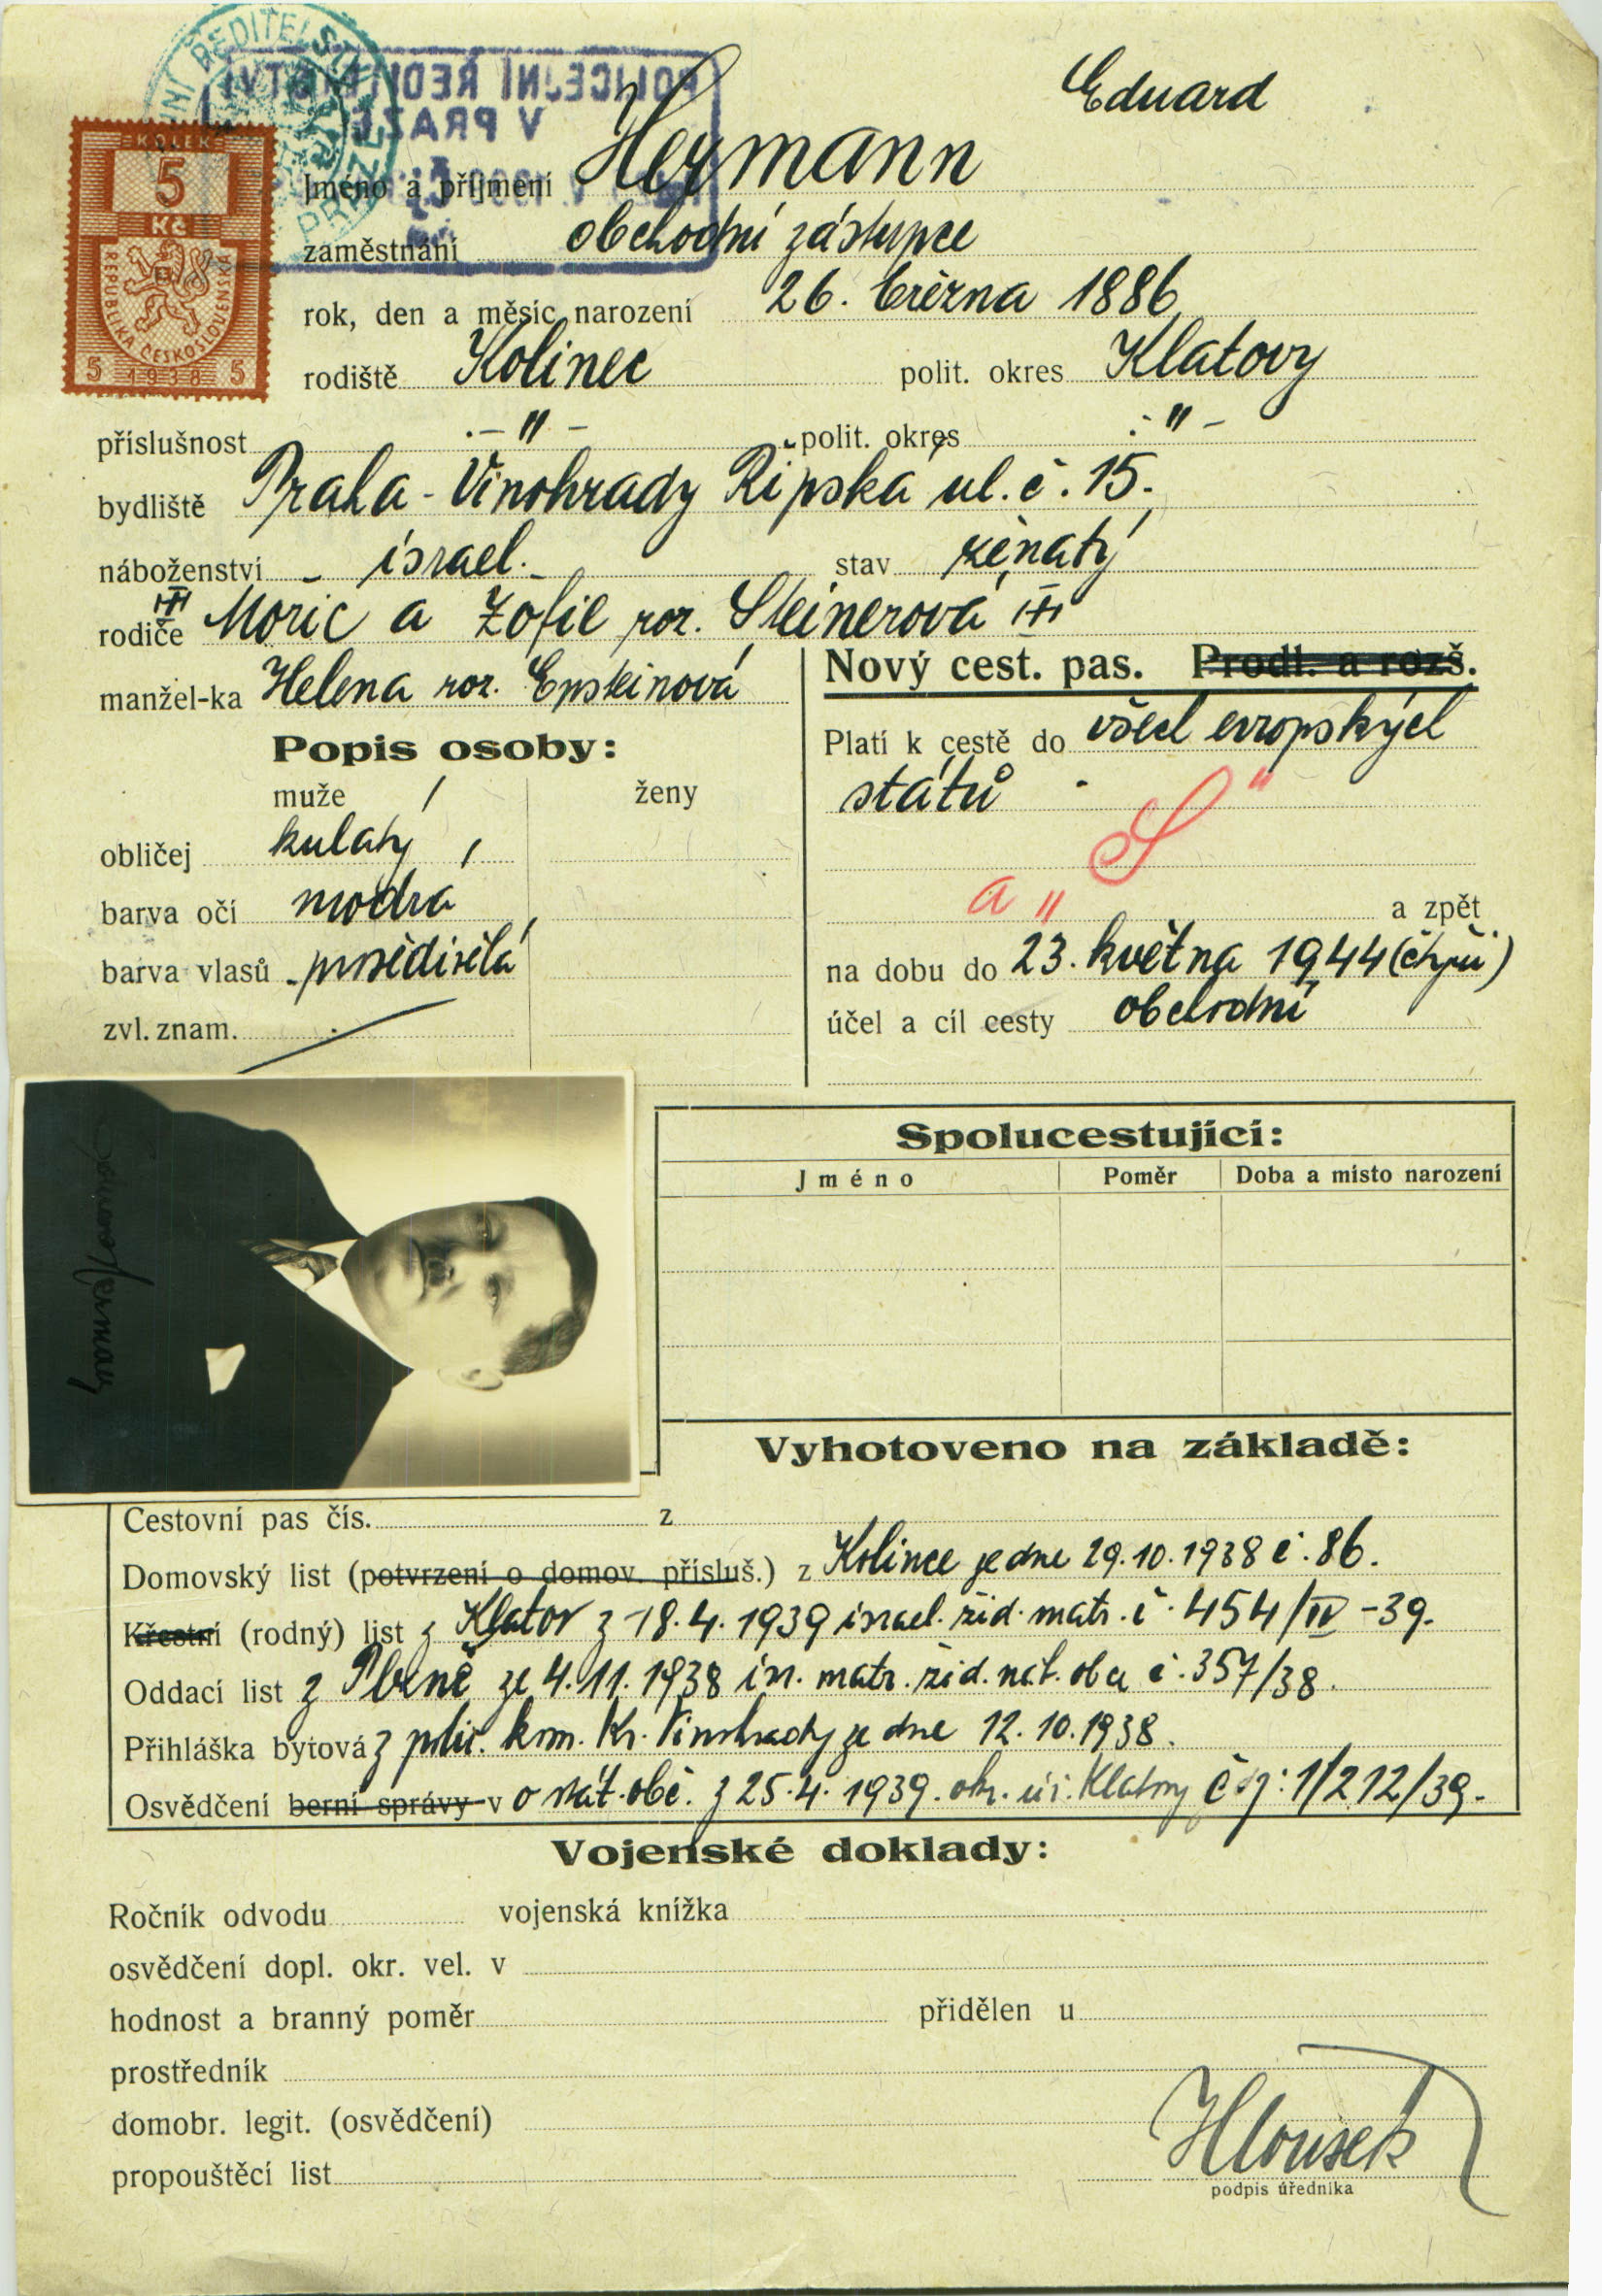 Eduard
POLICEJNÍ ŘEDITELSTVÍ
V PRAZE
KOLEK
5
Kč
REPUBLIKA ČESKOSLOVENSKÁ
5 1938 5
Jméno a příjmení Heřmann
zaměstnání obchodní zástupce
rok, den a měsíc narození 26. března 1886
rodiště Kolinec polit. okres Klatovy
příslušnost -"- polit. okres -"-
bydliště Praha-Vinohrady Řipská ul. č. 15.
náboženství - israel. - stav ženatý
rodiče Moric a Žofie roz. Steinerová
manžel-ka Helena roz. Epsteinová
Nový cest. pas. Prodl. a rozš.
Popis osoby:
muže ženy
obličej kulatý
barva očí modrá
barva vlasů prošedivělá
zvl. znam.
Platí k cestě do všech evropských
států
"S"
a "
a zpět
na dobu do 23. května 1944 (čtyři)
účel a cíl cesty obchodní
Spolucestující:
Jméno Poměr Doba a místo narození
Vyhotoveno na základě:
Cestovní pas čís. z
Domovský list (potvrzení o domov. přísluš.) z Kolince ze dne 29.10.1938 č. 86.
Křestní (rodný) list z Klatov z 18.4.1939 israel. žid. matr. č. 454/IV-39.
Oddací list z Plzně ze 4.11.1938 isr. matr. žid. nát. obce č. 357/38.
Přihláška bytová z polic. kom. Kr. Vinohrady ze dne 12.10.1938.
Osvědčení berní správy v o stát. obč. z 25.4.1939. okr. úř. Klatovy čj: 1/212/39.
Vojenské doklady:
Ročník odvodu vojenská knížka
osvědčení dopl. okr. vel. v
hodnost a branný poměr přidělen u
prostředník
domobr. legit. (osvědčení)
propouštěcí list
Hloušek
podpis úředníka